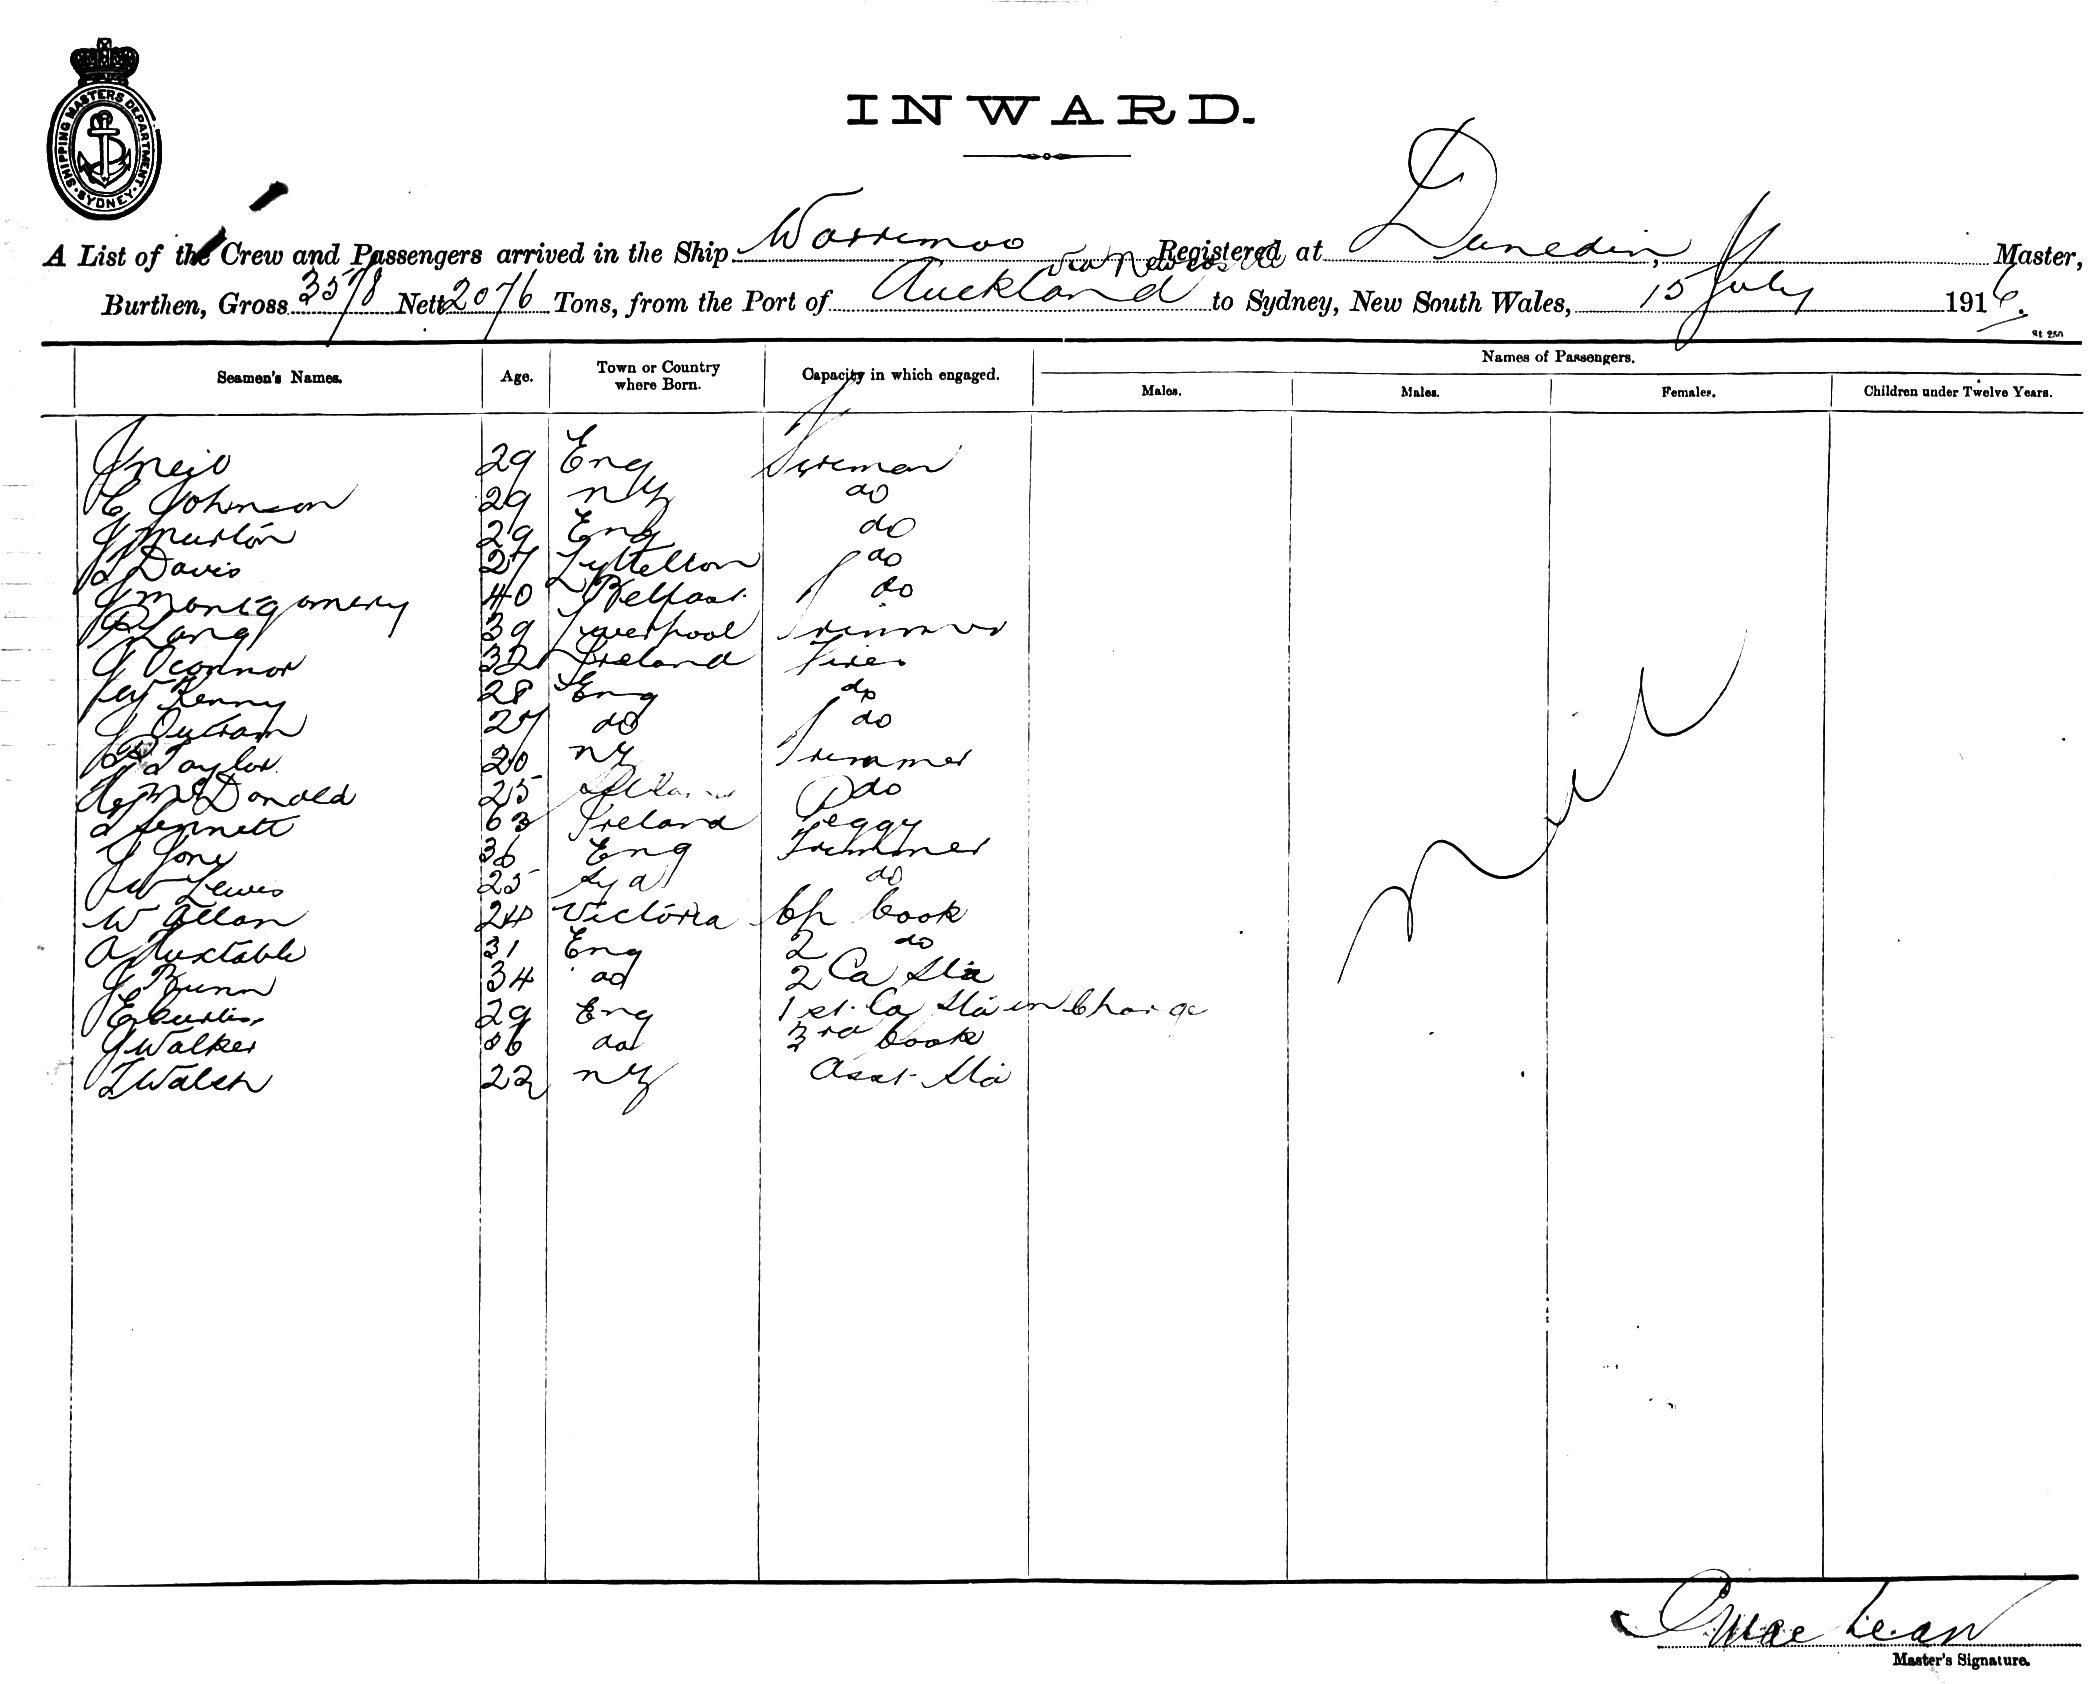 SHIPPING MASTERS DEPARTMENT. SYDNEY
INWARD.
A List of the Crew and Passengers arrived in the Ship Warrimoo Registered at Dunedin, Master,
via Newcastle
Burthen, Gross 3578 Nett 2076 Tons, from the Port of Auckland to Sydney, New South Wales, 15 July 1916.
St 250
Seamen's Names. Age. Town or Country where Born. Capacity in which engaged. Names of Passengers.
Males. Males. Females. Children under Twelve Years.
J Neil 29 Eng Fireman
C Johnson 29 NZ do
J Murton 29 Eng do
Davis 27 Lyttelton do
J Montgomery 40 Belfast do
P Lang 39 Liverpool Trimmer
J Oconnor 32 Ireland Fire
W Kenny 28 Eng do
J Outram 27 do do
Taylor 20 NZ Trimmer
McDonald 25 do
63 Ireland Peggy
J Jone 36 Eng Trimmer
W Lewis 25 Syd do
W Allan 24 Victoria Ch Cook
A Huxtable 31 Eng 2 do
J Bunn 34 do 2 Ca Std
E Curtis 29 Eng 1st Ca Std in Charge
J Walker 36 do 3rd Cook
T Walsh 22 NZ Asst Std
Nil
MacLean
Master's Signature.